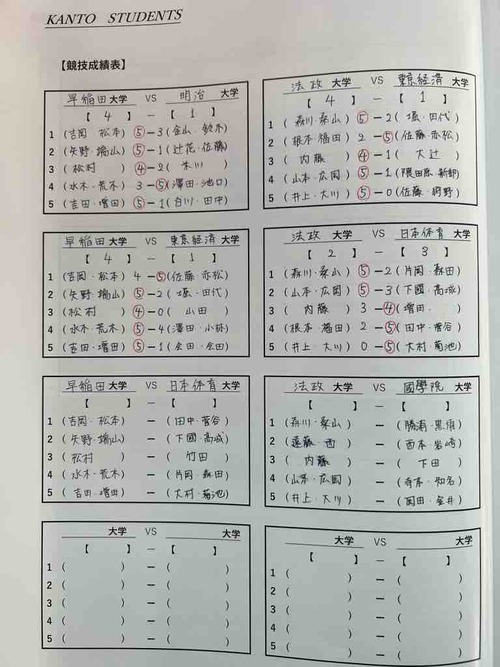 KANTO STUDENTS
【競技成績表】
早稲田大学 VS 明治 大学
【 4 】 － 【 1 】
1 (吉岡・松本) ⑤－3 (金山・鈴木)
2 (矢野・端山) ⑤－1 (辻花・佐藤)
3 (松村) ④－2 (木川)
4 (水木・荒木) 3－⑤ (澤田・池口)
5 (吉田・増田) ⑤－1 (白川・田中)
法政 大学 VS 東京経済 大学
【 4 】 － 【 1 】
1 (森川・桑山) ⑤－2 (堰・田代)
2 (根本・福田) 2－⑤ (佐藤・赤松)
3 (内藤) ④－1 (大辻)
4 (山本・広岡) ⑤－1 (隈田原・新部)
5 (井上・大川) ⑤－0 (佐藤・狩野)
早稲田大学 VS 東京経済大学
【 4 】 － 【 1 】
1 (吉岡・松本) 4－⑤ (佐藤・赤松)
2 (矢野・端山) ⑤－2 (堰・田代)
3 (松村) ④－0 (山田)
4 (水木・荒木) ⑤－4 (澤田・小林)
5 (吉田・増田) ⑤－1
法政 大学 VS 日本体育大学
【 2 】 － 【 3 】
1 (森川・桑山) ⑤－2 (片岡・森田)
2 (山本・広岡) ⑤－3 (下國・高城)
3 (内藤) 3－④ (増田)
4 (根本・福田) 2－⑤ (田中・菅谷)
5 (井上・大川) 0－⑤ (大村・菊池)
早稲田大学 VS 日本体育大学
【 】 － 【 】
1 (吉岡・松本) － (田中・菅谷)
2 (矢野・端山) － (下國・高城)
3 (松村) － (竹田)
4 (水木・荒木) － (片岡・森田)
5 (吉田・増田) － (大村・菊池)
法政 大学 VS 國學院 大学
【 】 － 【 】
1 (森川・桑山) －
2 (遠藤・西) － (西本・岩崎)
3 (内藤) － (下田)
4 (山本・広岡) － (寺本・知名)
5 (井上・大川) － (岡田・金井)
大学 VS 大学
【 】 － 【 】
1 ( ) － ( )
2 ( ) － ( )
3 ( ) － ( )
4 ( ) － ( )
5 ( ) － ( )
大学 VS 大学
【 】 － 【 】
1 ( ) － ( )
2 ( ) － ( )
3 ( ) － ( )
4 ( ) － ( )
5 ( ) － ( )